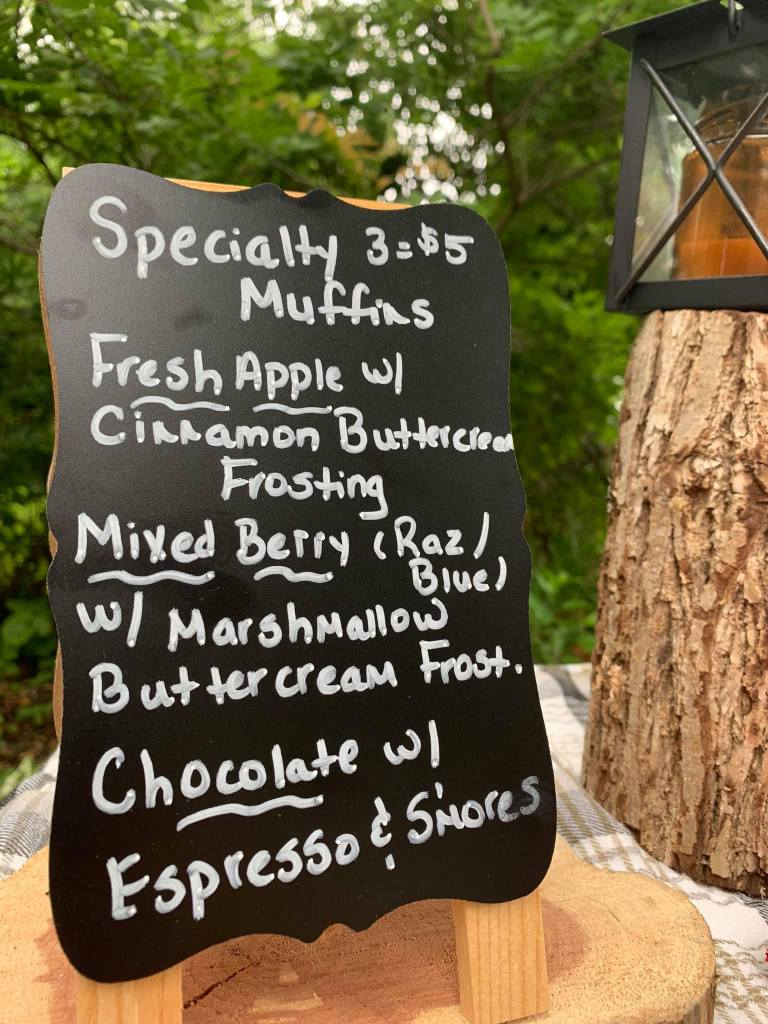 Specialty 3=$5
Muffins
Fresh Apple w/
Cinnamon Buttercream
Frosting
Mixed Berry (Raz/
Blue)
w/ Marshmallow
Buttercream Frost.
Chocolate w/
Espresso & S'mores